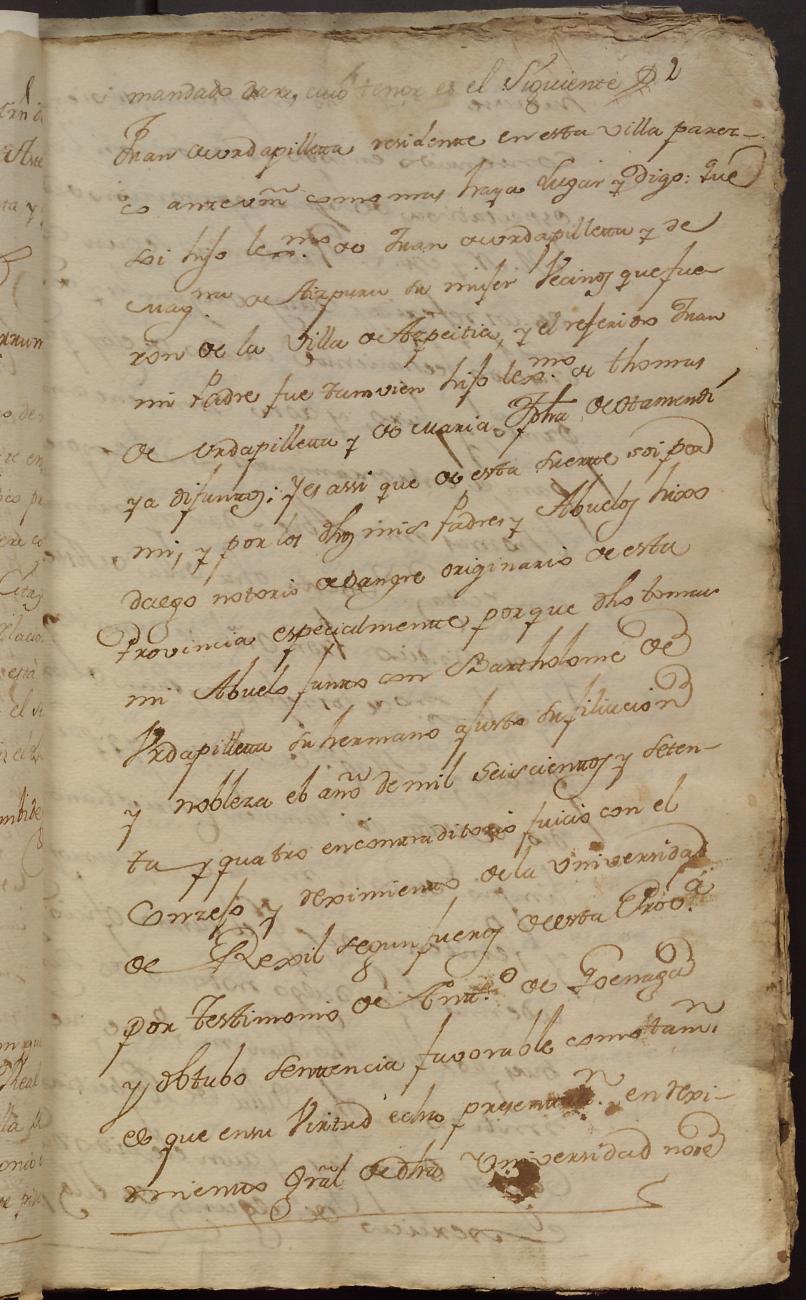 mandado dar, cuio tenor es el Siguiente 2
Juan de Vrdapilleta residente en esta villa parez-
co ante vm̃ como mas haya lugar y Digo: que
soi hijo lexmo. de Juan de Vrdapilleta y de
Magna. de Aizpuru su muger Vecinos que fue
ron de la Villa de Azpeitia, y el referido Juan
mi Padre fue tamvien hijo lexmo. de thomas
de Vrdapilleta y de Maria Jpha de Otamendi
ya difuntos; y es assi que de esta suerte soi por
mi, y por los dhos mis Padres y Abuelos hixo
dalgo notorio de Sangre originario de esta
Provincia especialmente porque dho tomas
mi Abuelo junto con Bartholome de
Vrdapilleta su hermano ajusto su filiacion
y nobleza el año de mil seiscientos y seten-
ta y quatro en contraditorio juicio con el
Conzejo y reximiento de la Universidad
de Rexil segun fueros de esta Prova.
por testimonio de Anto. de Goenaga
y obtubo sentencia favorable como tamn.
el que en su Virtud echa presentn. en rexi-
miento gral de dha Universidad